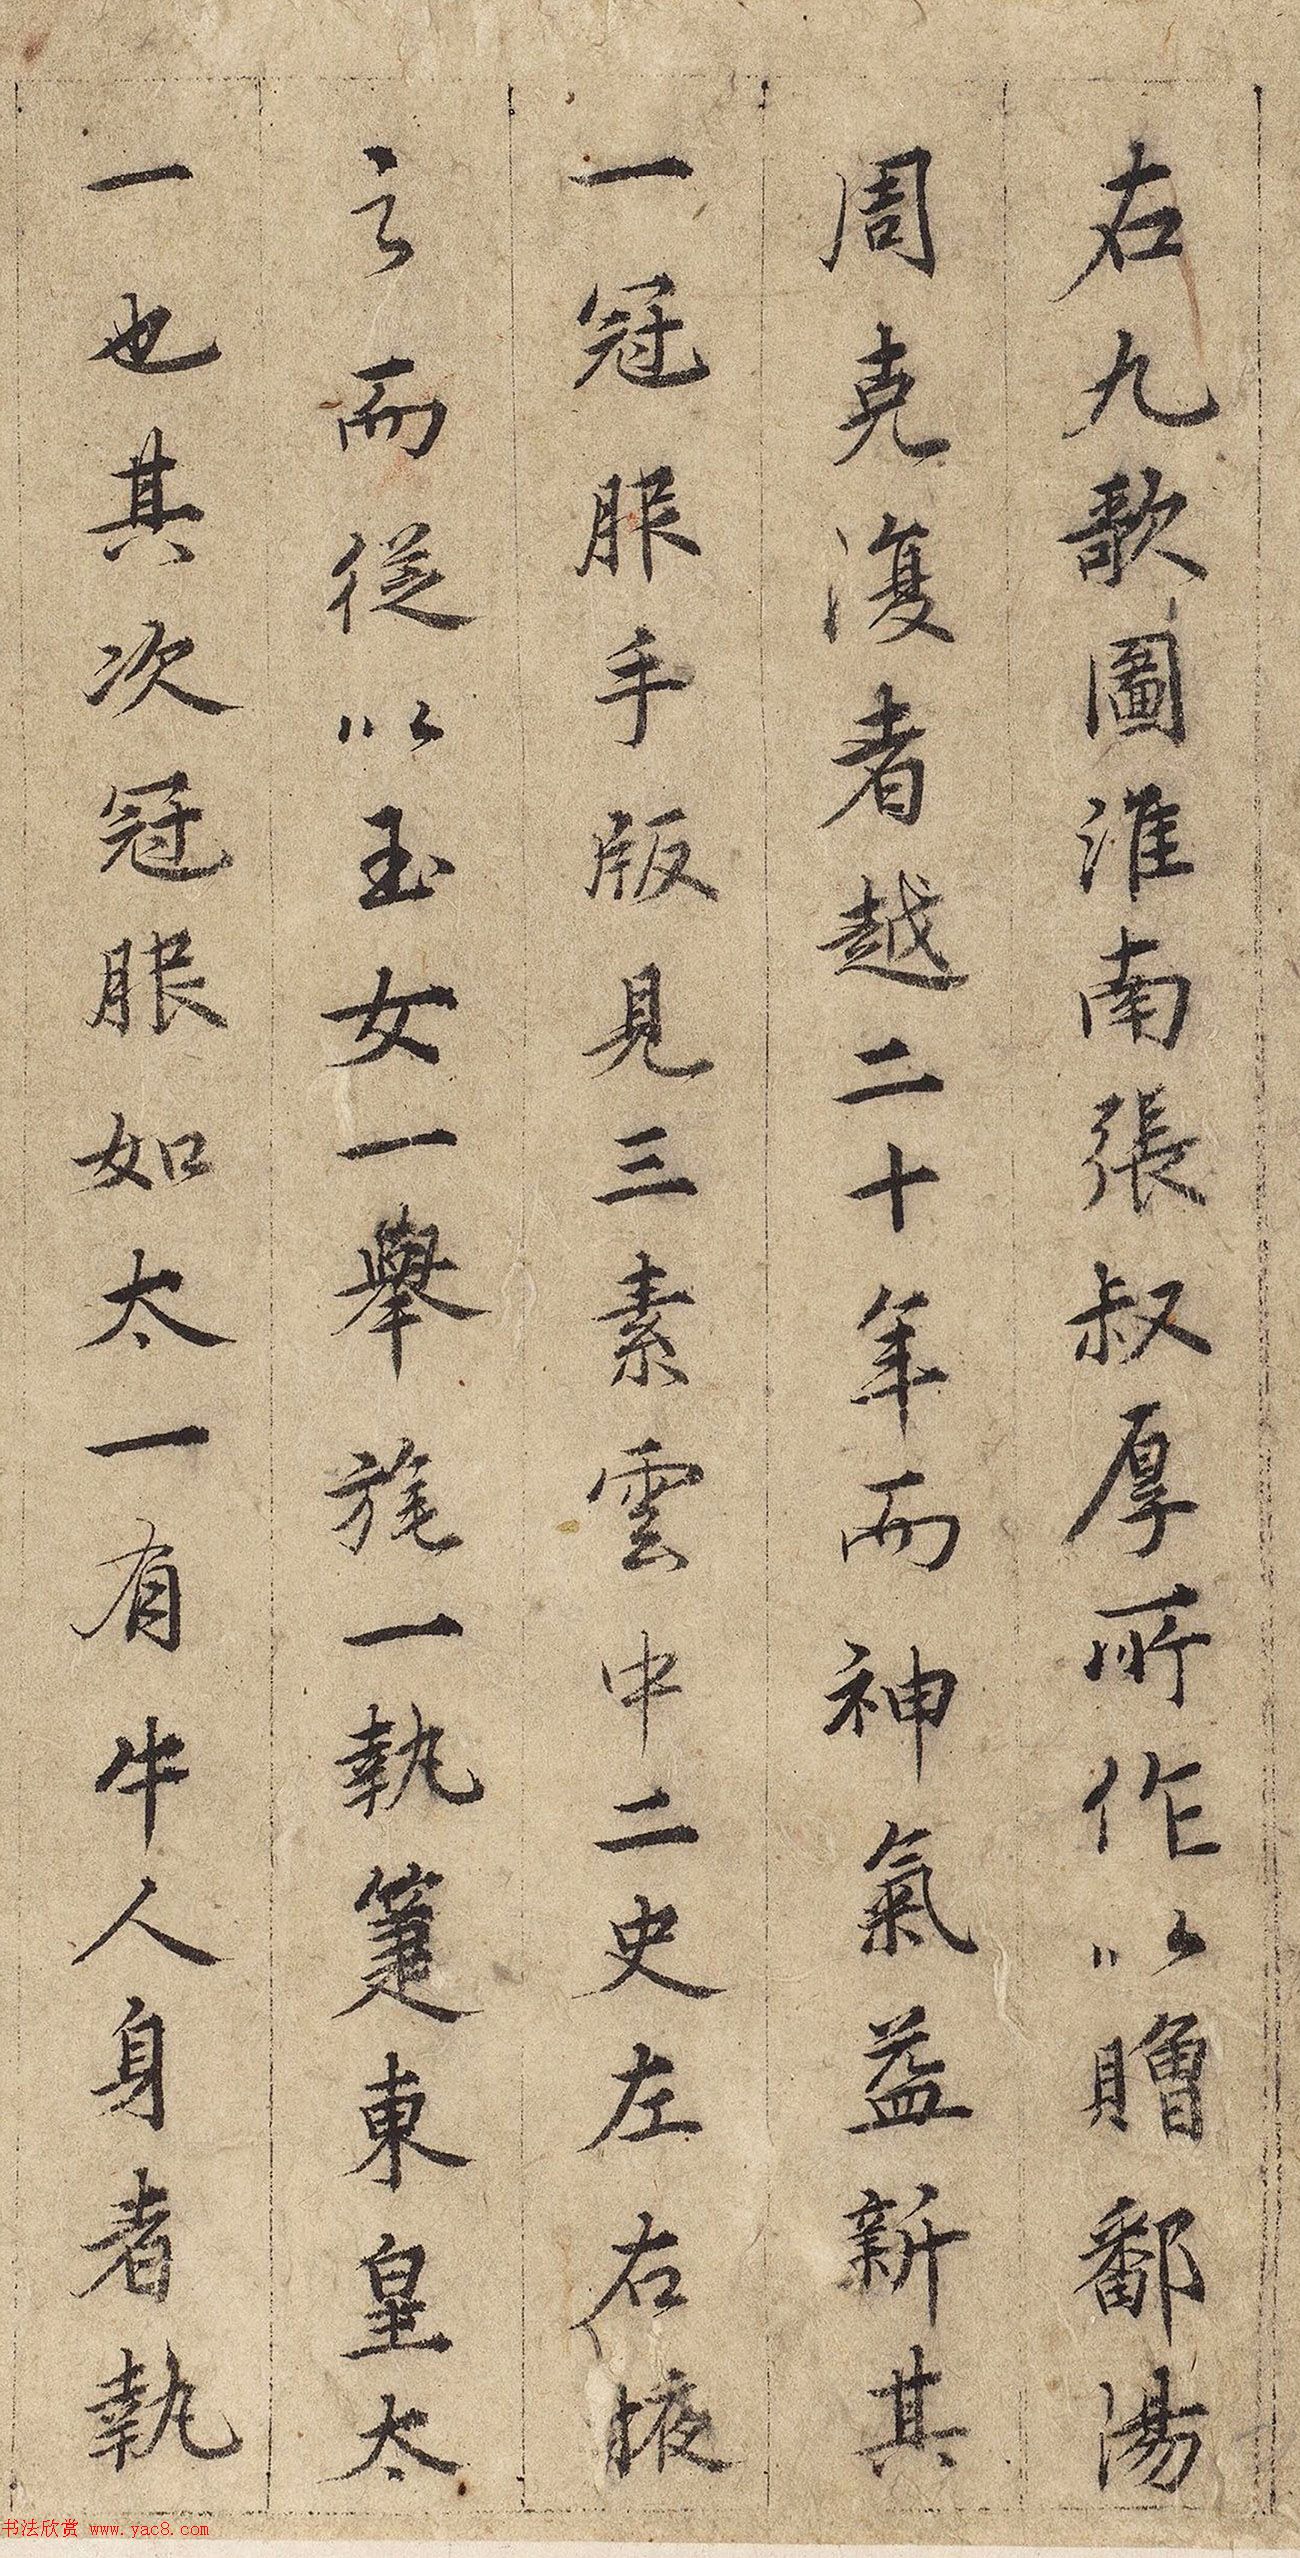 右九歌圖淮南張叔厚所作以贈鄱湯
周克復者越二十年而神氣益新其
一冠服手版見三素雲中二史左右掖
之而從以玉女一舉旄一執箑東皇太
一也其次冠服如太一有牛人身者執
书法欣赏 www.yac8.com